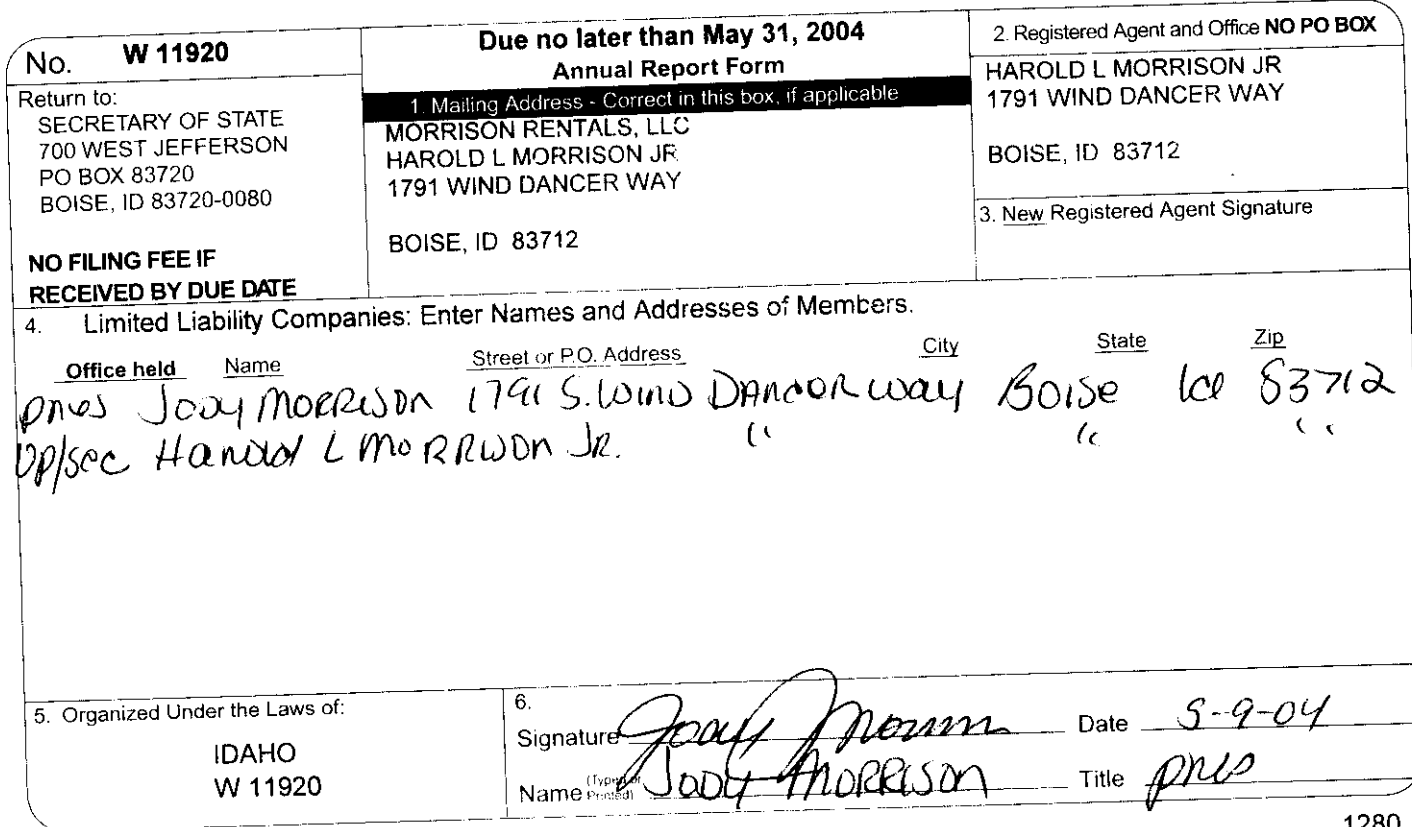 No. W 11920
Return to:
SECRETARY OF STATE
700 WEST JEFFERSON
PO BOX 83720
BOISE, ID 83720-0080
NO FILING FEE IF
RECEIVED BY DUE DATE
Due no later than May 31, 2004
Annual Report Form
1. Mailing Address - Correct in this box, if applicable
MORRISON RENTALS, LLC
HAROLD L MORRISON JR
1791 WIND DANCER WAY
BOISE, ID 83712
2. Registered Agent and Office NO PO BOX
HAROLD L MORRISON JR
1791 WIND DANCER WAY
BOISE, ID 83712
3. New Registered Agent Signature
4. Limited Liability Companies: Enter Names and Addresses of Members.
Office held Name Street or P.O. Address City State Zip
Pres Jody Morrison 1791 S. Wind Dancer Way Boise Id 83712
VP/Sec Harold L Morrison Jr. " " "
5. Organized Under the Laws of:
IDAHO
W 11920
6.
Signature Jody Morrison Date 5-9-04
Name (Typed or Printed) Jody Morrison Title Pres
1280